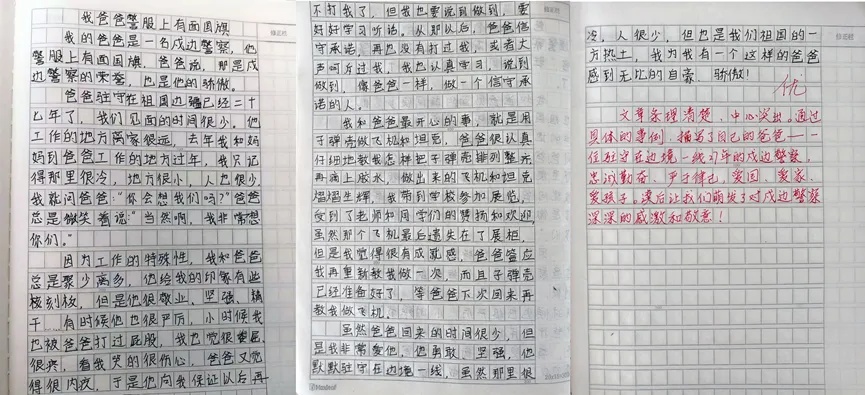 我爸爸警服上有面国旗
我的爸爸是一名戍边警察，他
警服上有面国旗，爸爸说，那是戍
边警察的荣誉，也是他的骄傲。
爸爸驻守在祖国边疆已经二十
七年了，我们见面的时间很少。他
工作的地方离家很远，去年我和妈
妈到爸爸工作的地方过年，我只记
得那里很冷，地方很小，人也很少
我就问爸爸：“你会想我们吗？”爸爸
总是微笑着说：“当然啊，我非常想
你们。”
因为工作的特殊性，我和爸爸
总是聚少离多，他给我的印象有些
模刻板，但是他很敬业、坚强、精
干……有时候他也很严厉，小时候我
也被爸爸打过屁股，我也觉很委屈
很疼，看我哭的很伤心，爸爸又觉
得很内疚，于是他向我保证以后再
不打我了，但我也要说到做到，要
好好学习听话。从那以后，爸爸信
守承诺，再也没有打过我，或者大
声呵斥过我，我也认真学习，说到
做到，像爸爸一样，做一个信守承
诺的人。
我和爸爸最开心的事，就是用
子弹壳做飞机和坦克，爸爸很认真
仔细地教我怎样把子弹壳排列整齐
再滴上胶水，做出来的飞机和坦克
熠熠生辉，我带到学校参加展览，
受到了老师和同学们的赞扬和欢迎
虽然那个飞机最后遗失在了展柜，
但是我觉得很有成就感，爸爸答应
我再重新教我做一次，而且子弹壳
已经准备好了，等爸爸下次回来再
教我做飞机。
虽然爸爸回来的时间很少，但
是我非常爱他，他勇敢、坚强，他
默默驻守在边境一线，虽然那里很
冷，人很少，但也是我们祖国的一
方热土，我为我有一个这样的爸爸
感到无比的自豪、骄傲！
优
文章条理清楚，中心突出。通过
具体的事例，描写了自己的爸爸——一
位驻守在边境一线多年的戍边警察，
忠诚勤奋、严于律己，爱国、爱家、
爱孩子。读后让我们萌发了对戍边警察
深深的感激和敬意！